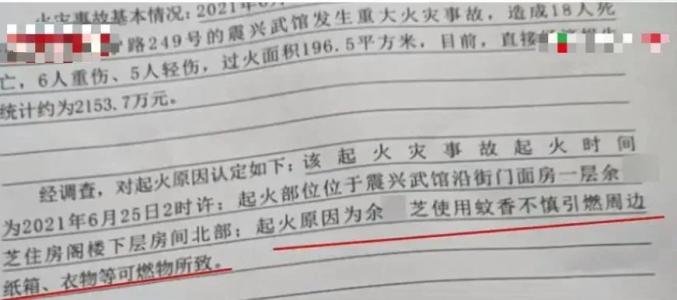 火灾事故基本情况：2021年6月
路249号的震兴武馆发生重大火灾事故，造成18人死
亡，6人重伤、5人轻伤，过火面积196.5平方米，目前，直接
统计约为2153.7万元。
经调查，对起火原因认定如下：该起火灾事故起火时间
为2021年6月25日2时许；起火部位位于震兴武馆沿街门面房一层余
芝住房阁楼下层房间北部；起火原因为余 芝使用蚊香不慎引燃周边
纸箱、衣物等可燃物所致。